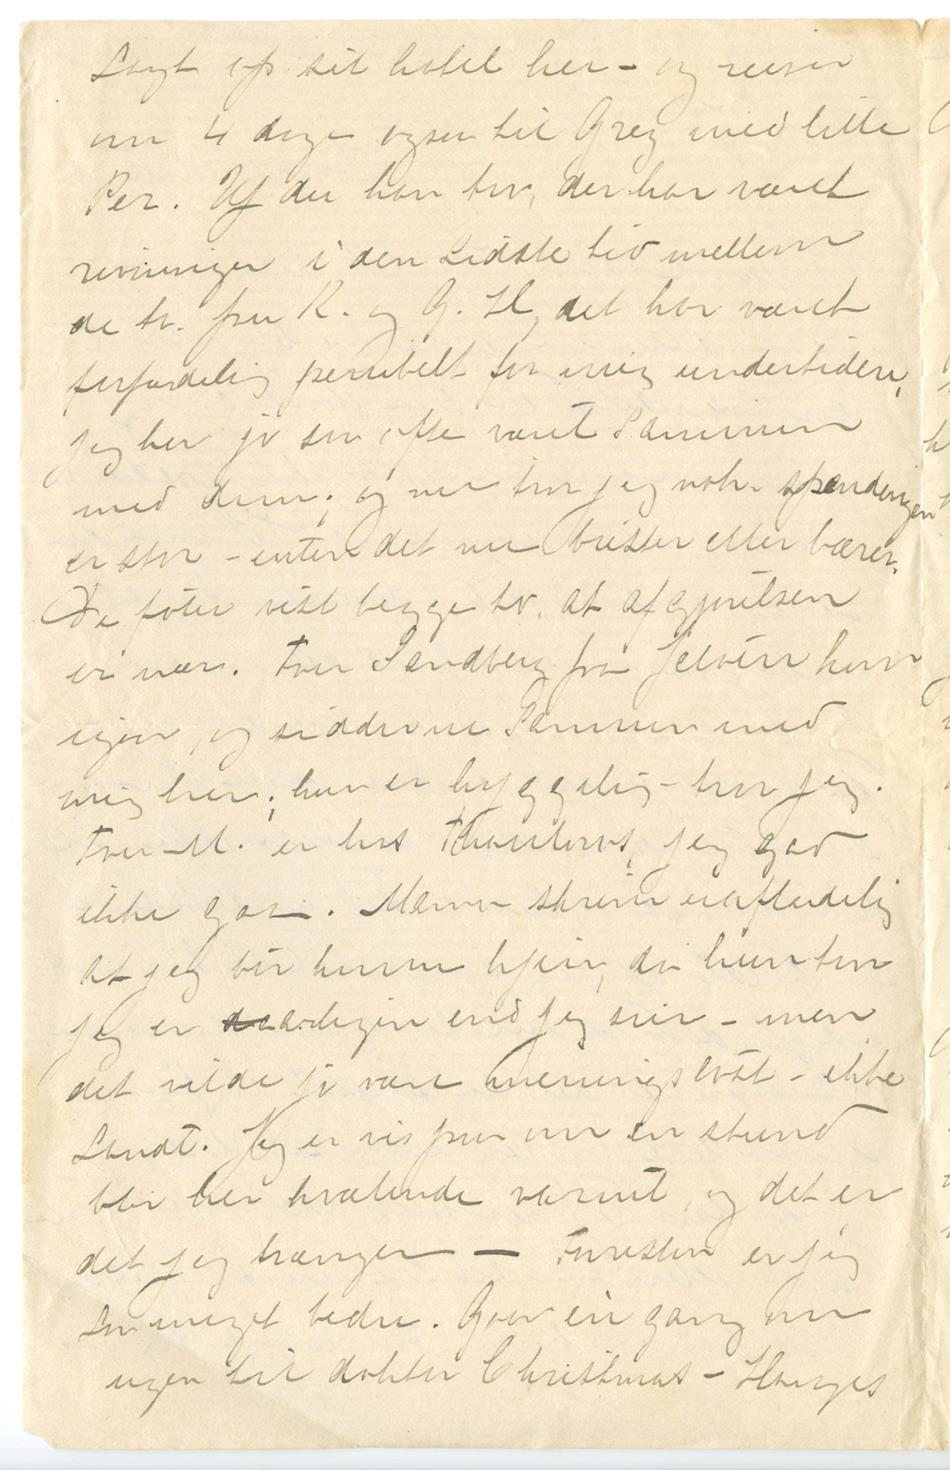 Sagt op sit hotel her – og reiser
om 4 dage ogsaa til Grez med lille
Per. Uf du kan tro, der har været
rivninger i den sidste tid mellem
de to. fru K. og G. H, det har været
forfærdelig penibelt for mig undertiden,
jeg har jo saa ofte været sammen
med dem; og nu tror jeg nok spændingen
er stor – enten det nu brister eller bærer.
De føler vist begge to, at afgjørelsen
er nær. Fru Sandberg fra kom
igjen, og sidder nu sammen med
mig her; hun er hyggelig – tror jeg.
Fru M. er hos jeg gad
ikke gaa. Mama skriver uafladelig
at jeg bør komme hjem, da hun tror
jeg er daarligere end jeg sier – men
det vilde jo være meningsløst – ikke
Sandt. Jeg er vis paa om en stund
blir her kvælende varmt, og det er
det jeg trænger — Forresten er jeg
saa meget bedre. Gaar en gang om
ugen til doktor Christmas –